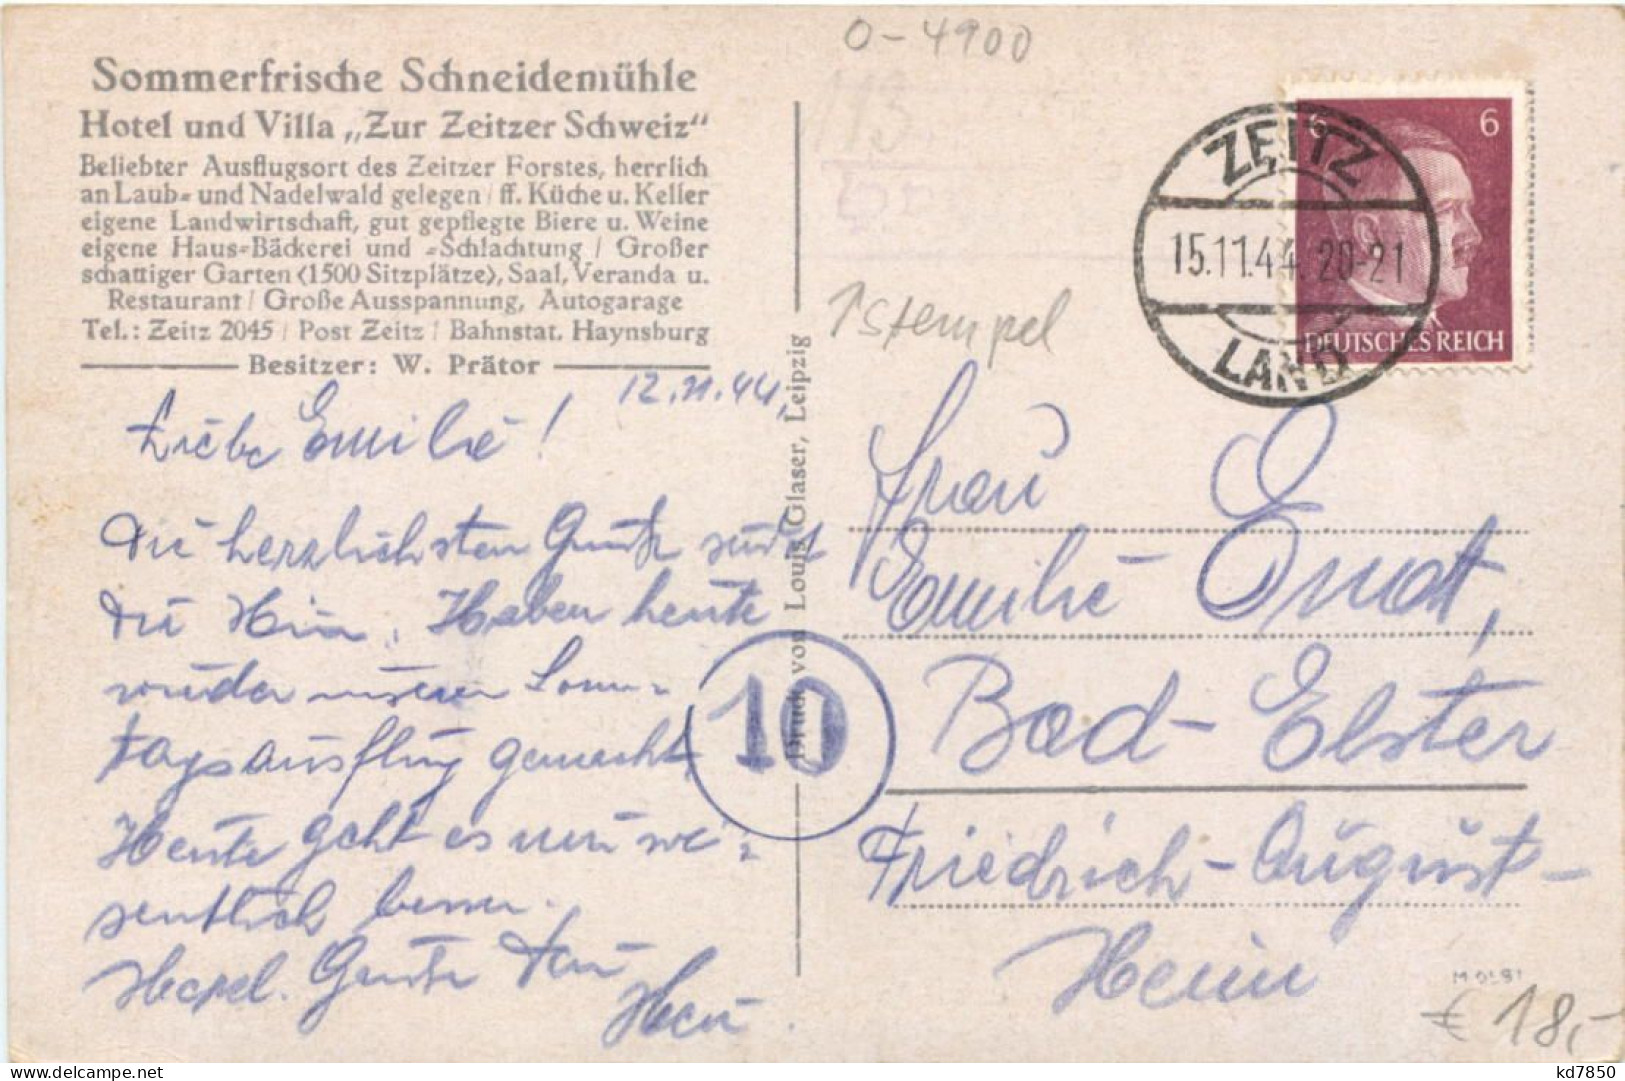 O-4900
113
Sommerfrische Schneidemühle
Hotel und Villa „Zur Zeitzer Schweiz"
Beliebter Ausflugsort des Zeitzer Forstes, herrlich
an Laub- und Nadelwald gelegen / ff. Küche u. Keller
eigene Landwirtschaft, gut gepflegte Biere u. Weine
eigene Haus-Bäckerei und -Schlachtung / Großer
schattiger Garten (1500 Sitzplätze), Saal, Veranda u.
Restaurant / Große Ausspannung, Autogarage
Tel.: Zeitz 2045 / Post Zeitz / Bahnstat. Haynsburg
Besitzer: W. Prätor
12.11.44.
Liebe Emilie!
Die herzlichsten Grüße sendet
Dir
Haben heute
wieder unseren Sonn-
tagsausflug gemacht,
Heute geht es mir we-
sentlich besser.
Herzl. Grüße
Druck von Louis Glaser, Leipzig
10
↑ stempel
ZEITZ
15.11.44. 20-21
LAND
6 6
DEUTSCHES REICH
Frau
Emilie
Bad-Elster
Friedrich-August-
Heim
€ 18,-
kd7850